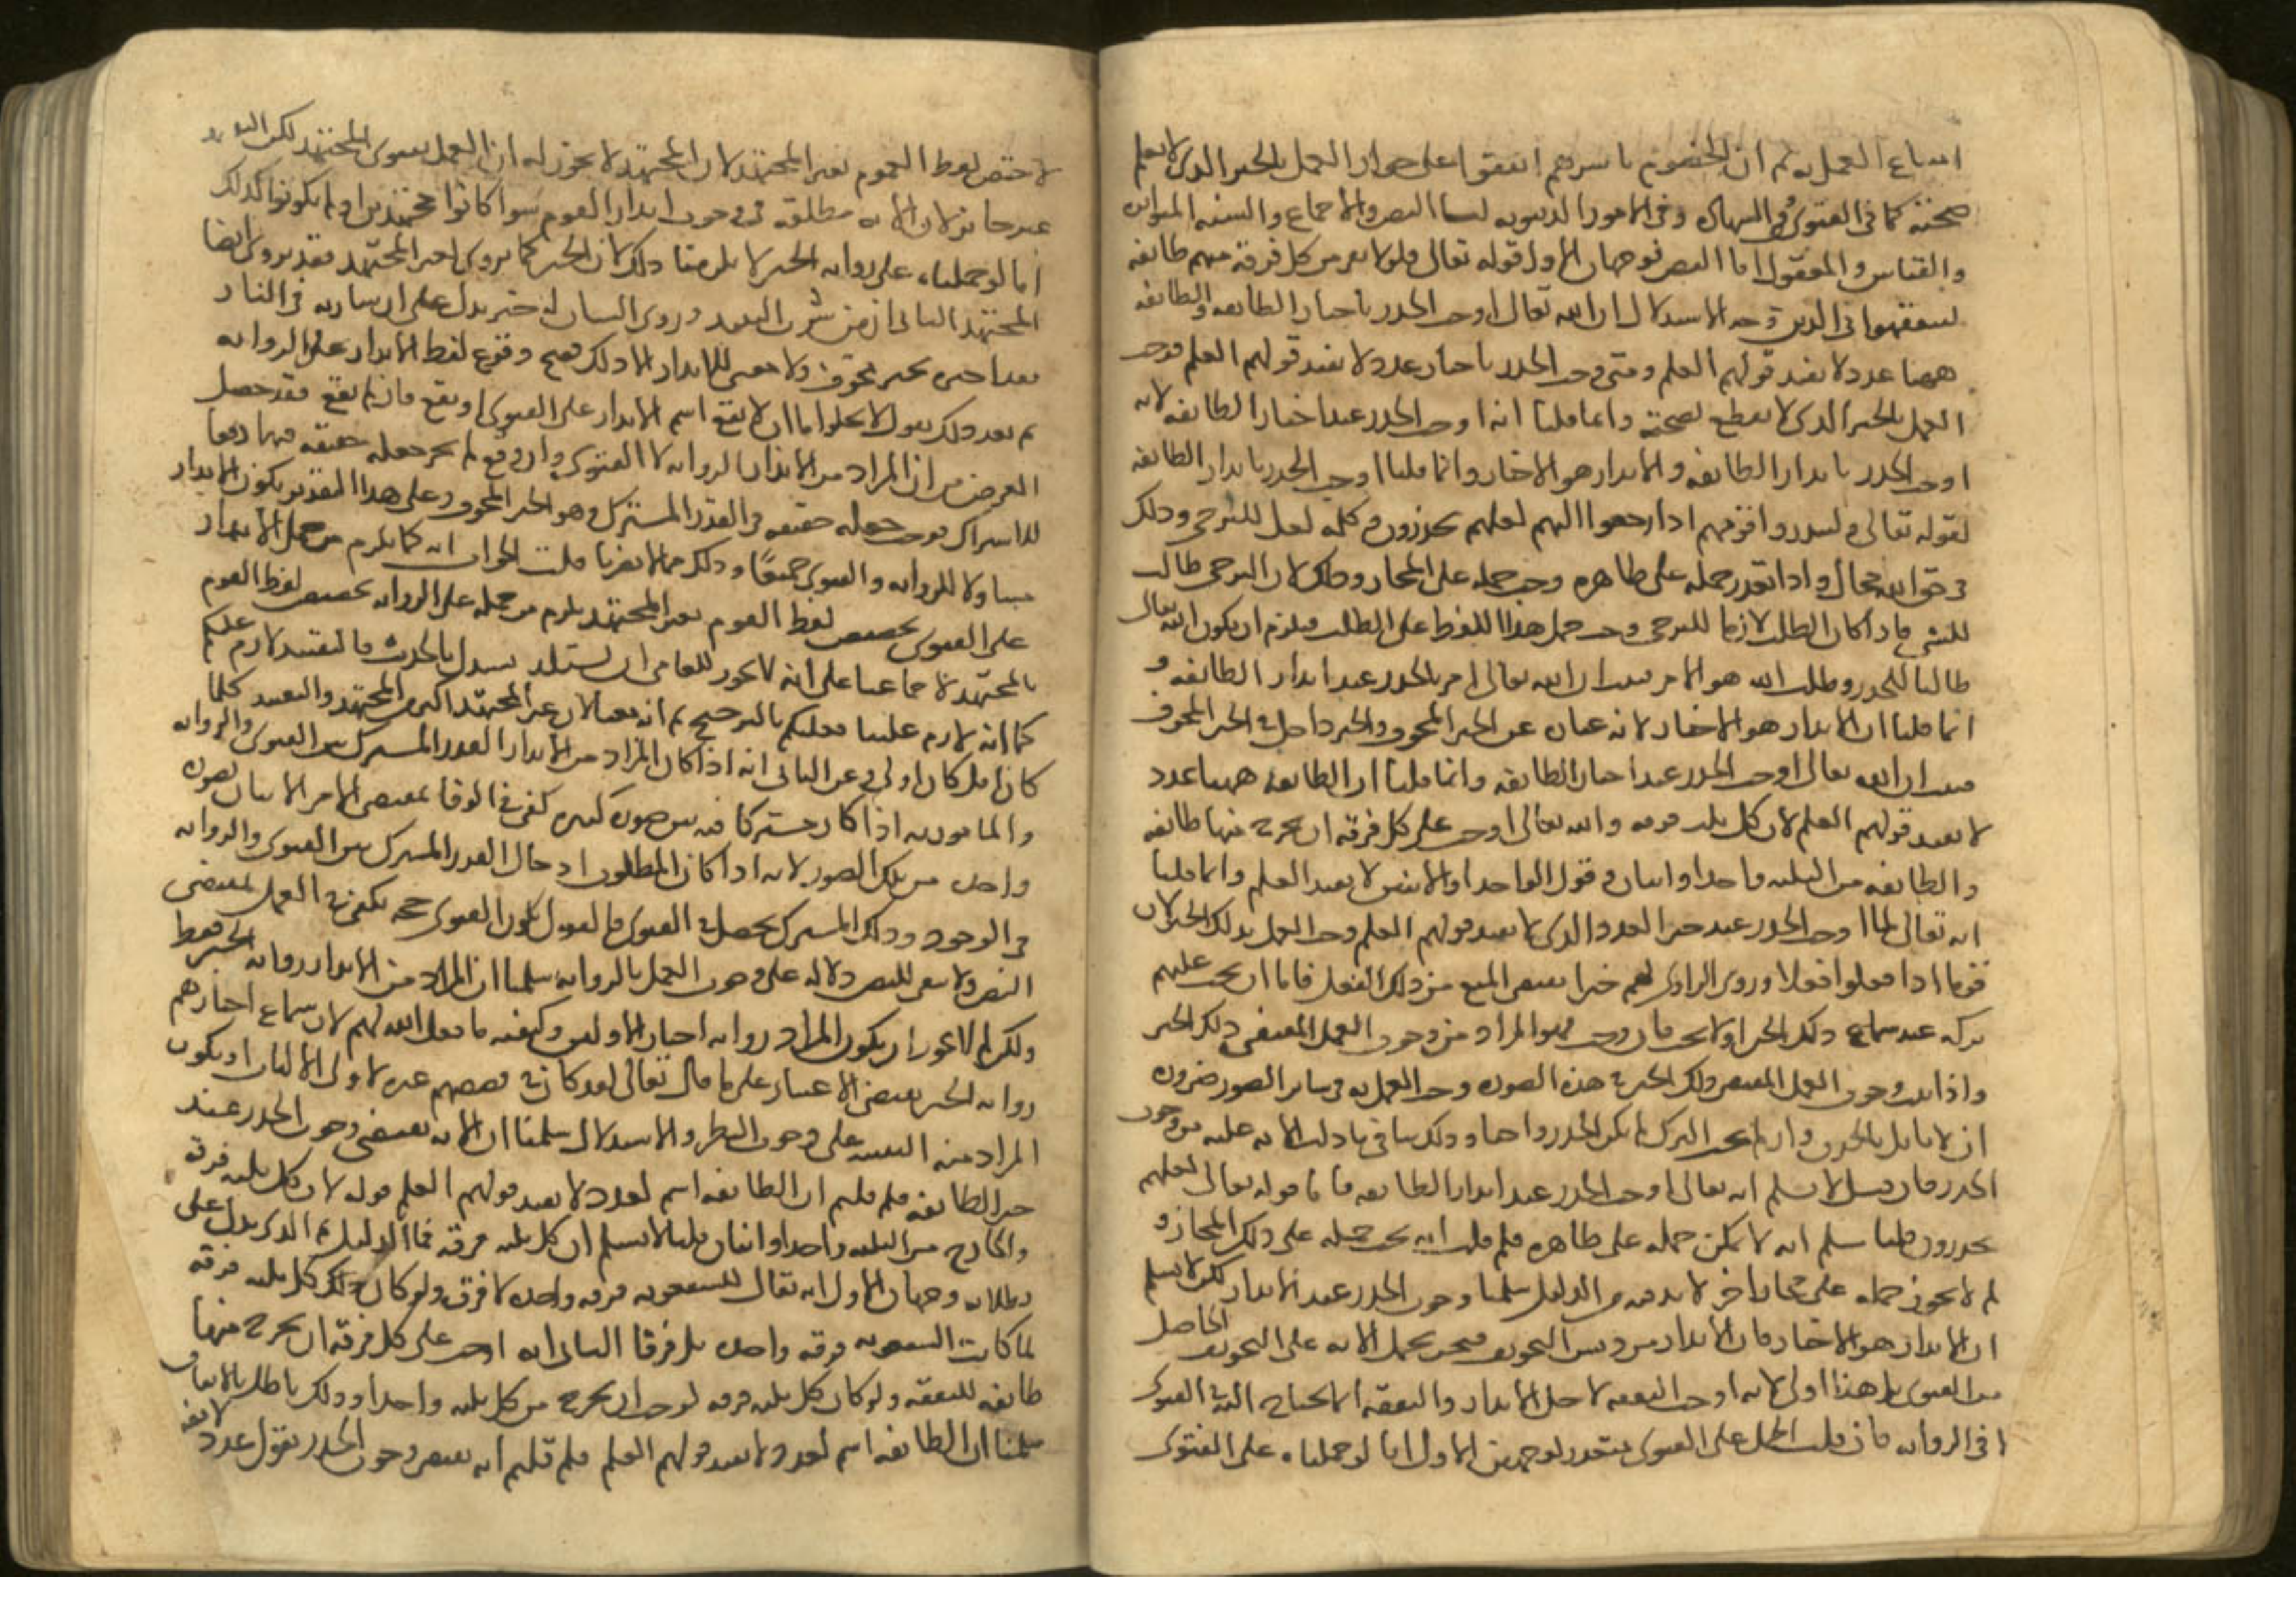 امتناع العمل به ثم ان الخصوم باسرهم اتفقوا على جواز العمل بالخبر الذي لا يعلم
صحته كما في الفتوى وفي الشهادة وفي الامور الدنيوية لنا النص والاجماع والسنة المتواترة
والقياس والمعقول اما النص فوجهان الاول قوله تعالى فلولا نفر من كل فرقة منهم طائفة
ليتفقهوا في الدين وجه الاستدلال ان الله تعالى اوجب الحذر باخبار الطائفة والطائفة
ههنا عدد لا يفيد قولهم العلم ومتى وجب الحذر باخبار عدد لا يفيد قولهم العلم فوجب
العمل بالخبر الذي لا يقطع بصحته وانما قلنا انه اوجب الحذر عند اخبار الطائفة لانه
اوجب الحذر بانذار الطائفة والانذار هو الاخبار وانما قلنا اوجب الحذر بانذار الطائفة
لقوله تعالى ولينذروا قومهم اذا رجعوا اليهم لعلهم يحذرون وكلمة لعل للترجي وذلك
في حق الله محال واذا تعذر حمله على ظاهره وجب حمله على المجاز وذلك لان الترجي طالب
للشي فاذا كان الطلب لازما للترجي وجب حمل هذا اللفظ على الطلب فيلزم ان يكون الله تعالى
طالبا للحذر وطلب الله هو الامر فثبت ان الله تعالى امر بالحذر عند انذار الطائفة و
انما قلنا ان الانذار هو الاخبار لانه عبارة عن الخبر المخوف والخبر داخل في الخبر المخوف
فثبت ان الله تعالى اوجب الحذر عند اخبار الطائفة وانما قلنا ان الطائفة ههنا عدد
لا يفيد قولهم العلم لان كل ثلثة فرقة والله تعالى اوجب على كل فرقة ان يخرج منها طائفة
والطائفة من الثلثة واحد او اثنان وقول الواحد او الاثنين لا يفيد العلم وانما قلنا
انه تعالى لما اوجب الحذر عند خبر العدد الذي لا يفيد قولهم العلم وجب العمل بذلك الخبر لان
قوما اذا فعلوا فعلا وروى الراوي لهم خبرا يقتضي المنع من ذلك الفعل فاما ان يجب عليهم
تركه عند سماع ذلك الخبر او لا يجب فان وجب فهو المراد من وجوب العمل بمقتضى ذلك الخبر
واذا ثبت وجوب العمل بمقتضى ذلك الخبر في هذه الصورة وجب العمل به في سائر الصور ضرورة
ان لا قائل بالفرق وان لم يجب الترك لم يكن الحذر واجبا وذلك ينافي ما دلت الاية عليه من وجوب
الحذر فان قيل لا نسلم انه تعالى اوجب الحذر عند انذار الطائفة فاما قوله تعالى لعلهم
يحذرون قلنا نسلم انه لا يمكن حمله على ظاهره فلم قلت انه يجب حمله على ذلك المجاز و
لم لا يجوز حمله على مجاز اخر لا بد فيه من الدليل سلمنا وجوب الحذر عند الانذار لكن لا نسلم
ان الانذار هو الاخبار فان الانذار من جنس التخويف فنحن نحمل الاية على التخويف الحاصل
من الفتوى بل هذا اولى لانه اوجب التفقه لاجل الانذار والتفقه انما يحتاج اليه في الفتوى
لا في الرواية فان قلت الحمل على الفتوى متعذر لوجهين الاول انا لو حملناه على الفتوى
لاختص لفظ القوم بغير المجتهد لان المجتهد لا يجوز له ان العمل بفتوى المجتهد لكن التقييد
غير جائز لان الاية مطلقة في وجوب انذار القوم سوا كانوا مجتهدين او لم يكونوا كذلك
اما لو حملناه على رواية الخبر لا يلزمنا ذلك لان الخبر كما يروى لغير المجتهد فقد يروى ايضا
للمجتهد الثاني ان من شرب النبيذ وروى انسان له خبر يدل على ان شاربه في النار
فقد اخبره بخبر مخوف ولا معنى للانذار الا ذلك فصح وقوع لفظ الانذار على الرواية
ثم بعد ذلك نقول لا يخلوا اما ان لا يقع اسم الانذار على الفتوى او يقع فان لم يقع فقد حصل
الغرض من ان المراد من الانذار الرواية لا الفتوى وان وقع لم يجز جعله حقيقة فيهما دفعا
للاشتراك فوجب جعله حقيقة في القدر المشترك وهو الخبر المخوف وعلى هذا التقدير يكون الانذار
متناولا للرواية والفتوى جميعا وذلك مما لا يضرنا قلت الجواب انه كما يلزم من حمل الانذار
على الفتوى تخصيص لفظ القوم بغير المجتهد يلزم من حمله على الرواية تخصيص لفظ القوم
بالمجتهد لاجماعنا على انه لا يجوز للعامي ان يستدل بالحديث فالتقييد لازم عليكم
كما انه لازم علينا فعليكم بالترجيح ثم انه معنا لان غير المجتهد اكثر من المجتهد والتقييد كلما
كان اقل كان اولى وعن الثاني انه اذا كان المراد من الانذار القدر المشترك بين الفتوى والرواية
والمامور به اذا كان مشتركا فيه بين صور كثيرة كفى في الوفا بمقتضى الامر الاتيان بصورة
واحدة من تلك الصور لانه اذا كان المطلوب ادخال القدر المشترك بين الفتوى والرواية
في الوجود وذلك المشترك يحصل في الفتوى فالقول بكون الفتوى حجة يكفي في العمل بمقتضى
النص ولا يبقى للنص دلالة على وجوب العمل بالرواية سلمنا ان المراد من الانذار رواية الخبر فقط
ولكن لم لا يجوز ان يكون المراد رواية اخبار الاولين وكيفية ما فعل الله بهم لان سماع اخبارهم
رواية الخبر يقتضي الاعتبار على ما قال تعالى لقد كان في قصصهم عبرة لاولي الالباب او يكون
المراد منه التنبيه على وجوب النظر والاستدلال سلمنا ان الاية تقتضي وجوب الحذر عند
خبر الطائفة فلم قلتم ان الطائفة اسم لعدد لا يفيد قولهم العلم قوله لان كل ثلثة فرقة
والخارج من الثلثة واحد او اثنان قلنا لا نسلم ان كل ثلثة فرقة فما الدليل ثم الذي يدل على
بطلانه وجهان الاول انه يقال الشفعوية فرقة واحدة لا فرق ولو كان كل ثلثة فرقة
لما كانت الشفعوية فرقة واحدة بل فرقا الثاني انه اوجب على كل فرقة ان يخرج منها
طائفة للتفقه ولو كان كل ثلثة فرقة لوجب ان يخرج من كل ثلثة واحد وذلك باطل بالاتفاق
سلمنا ان الطائفة اسم لعدد لا يفيد قولهم العلم فلم قلتم انه يقتضي وجوب الحذر بقول عدد لا يفيد